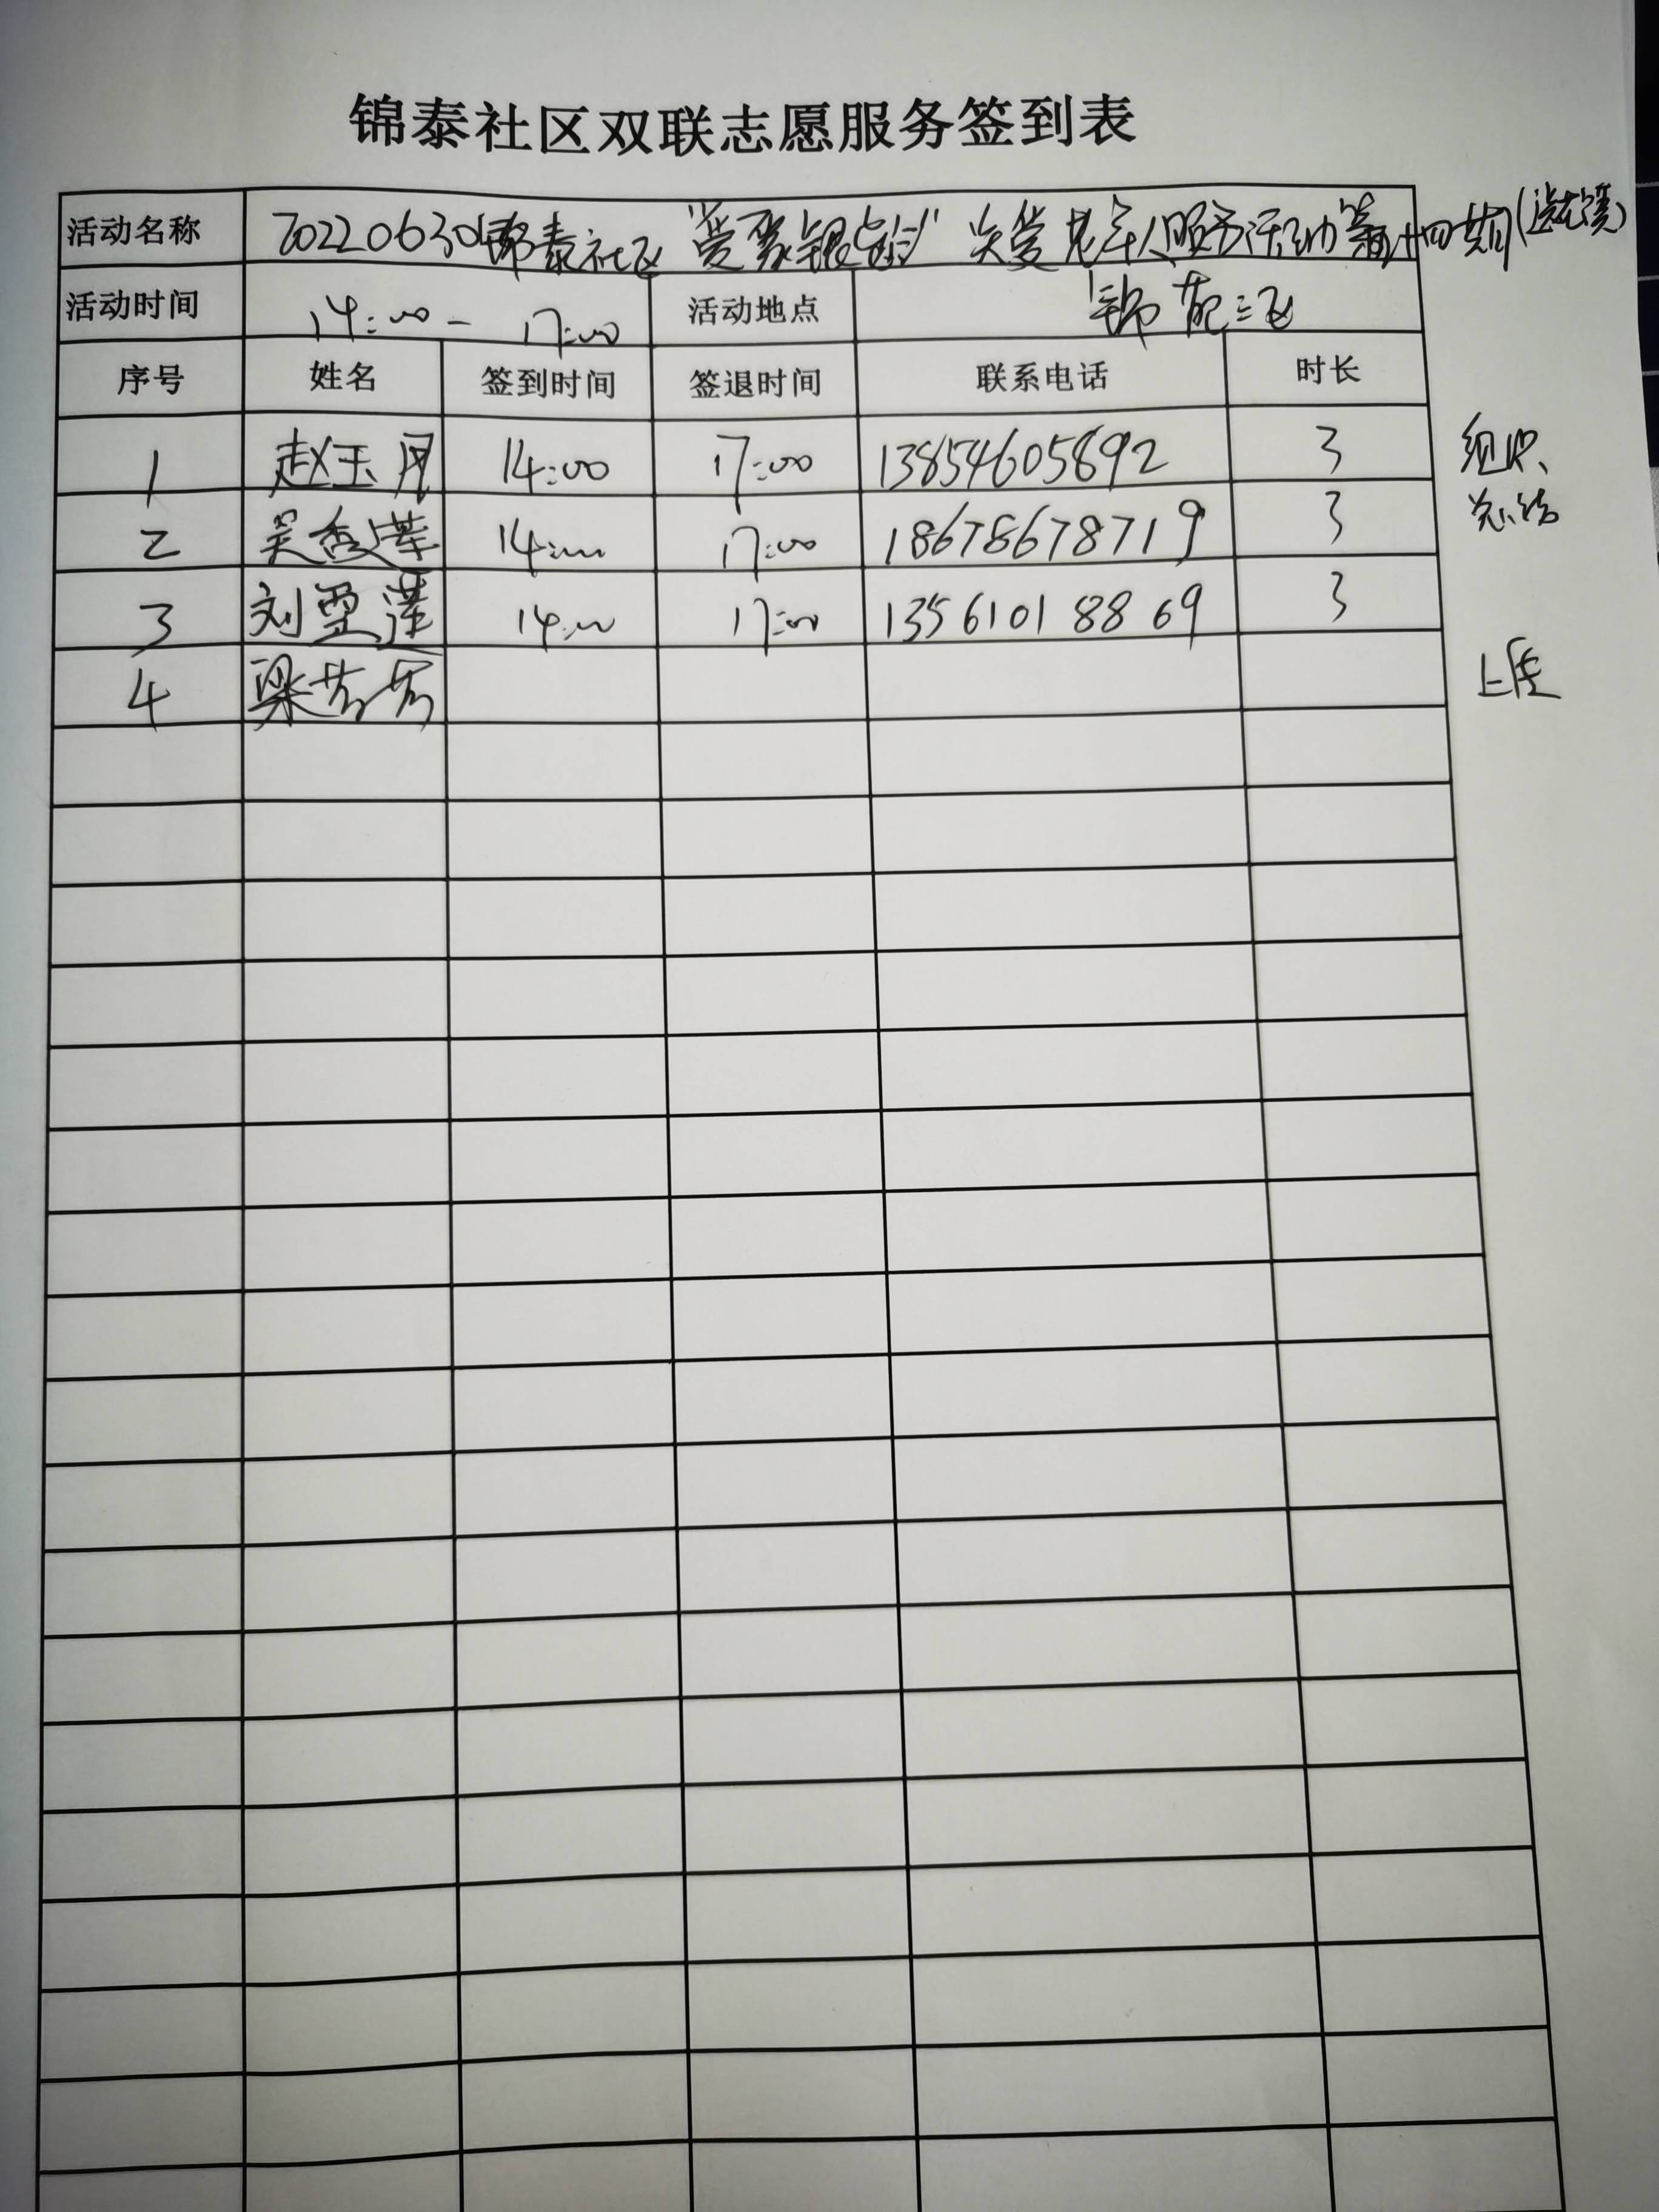 锦泰社区双联志愿服务签到表
活动名称 20220630锦泰社区“爱聚银龄”关爱老年人服务活动第四十四期(送蔬菜)
活动时间 14:00- 17:00 活动地点 锦苑三区
序号 姓名 签到时间 签退时间 联系电话 时长
1 赵玉月 14:00 17:00 13854605892 3 组织、
2 吴秀莲 14:00 17:00 18678678719 3 总结
3 刘雪莲 14:00 17:00 13561018869 3
4 梁芳芳 上传